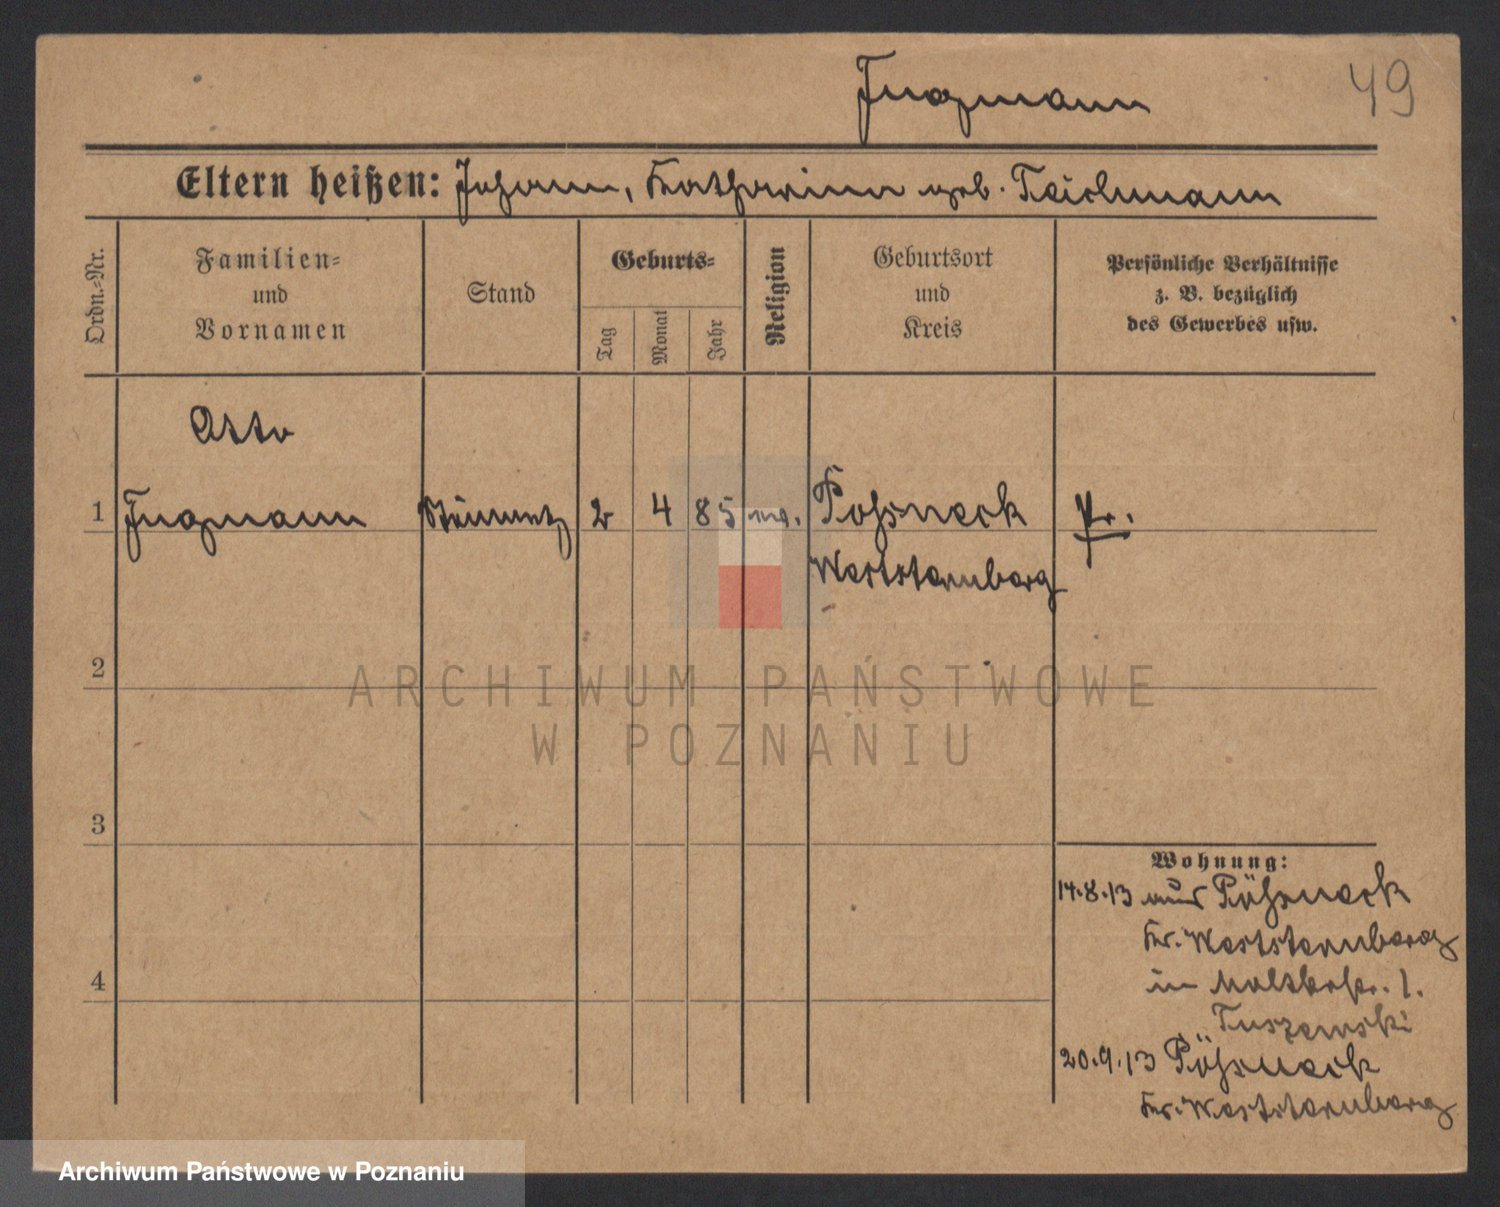 Jungmann 49
Eltern heißen: Johann, Katharina geb. Teichmann
Ordn.=Nr.
Familien=
und
Vornamen
Stand
Geburts=
Tag
Monat
Jahr
Religion
Geburtsort
und
Kreis
Persönliche Verhältnisse
z. B. bezüglich
des Gewerbes usw.
Otto
1 Jungmann Steinmetz 2 4 85 Pohsneck Pr.
Weststernberg
2
ARCHIWUM PAŃSTWOWE
W POZNANIU
3
Wohnung:
14.8.13 aus Pöhsneck
Kr. Weststernberg
4
in Moltkestr. 1.
Tuszewski
20.9.13 Pöhsneck
Kr. Weststernberg
Archiwum Państwowe w Poznaniu